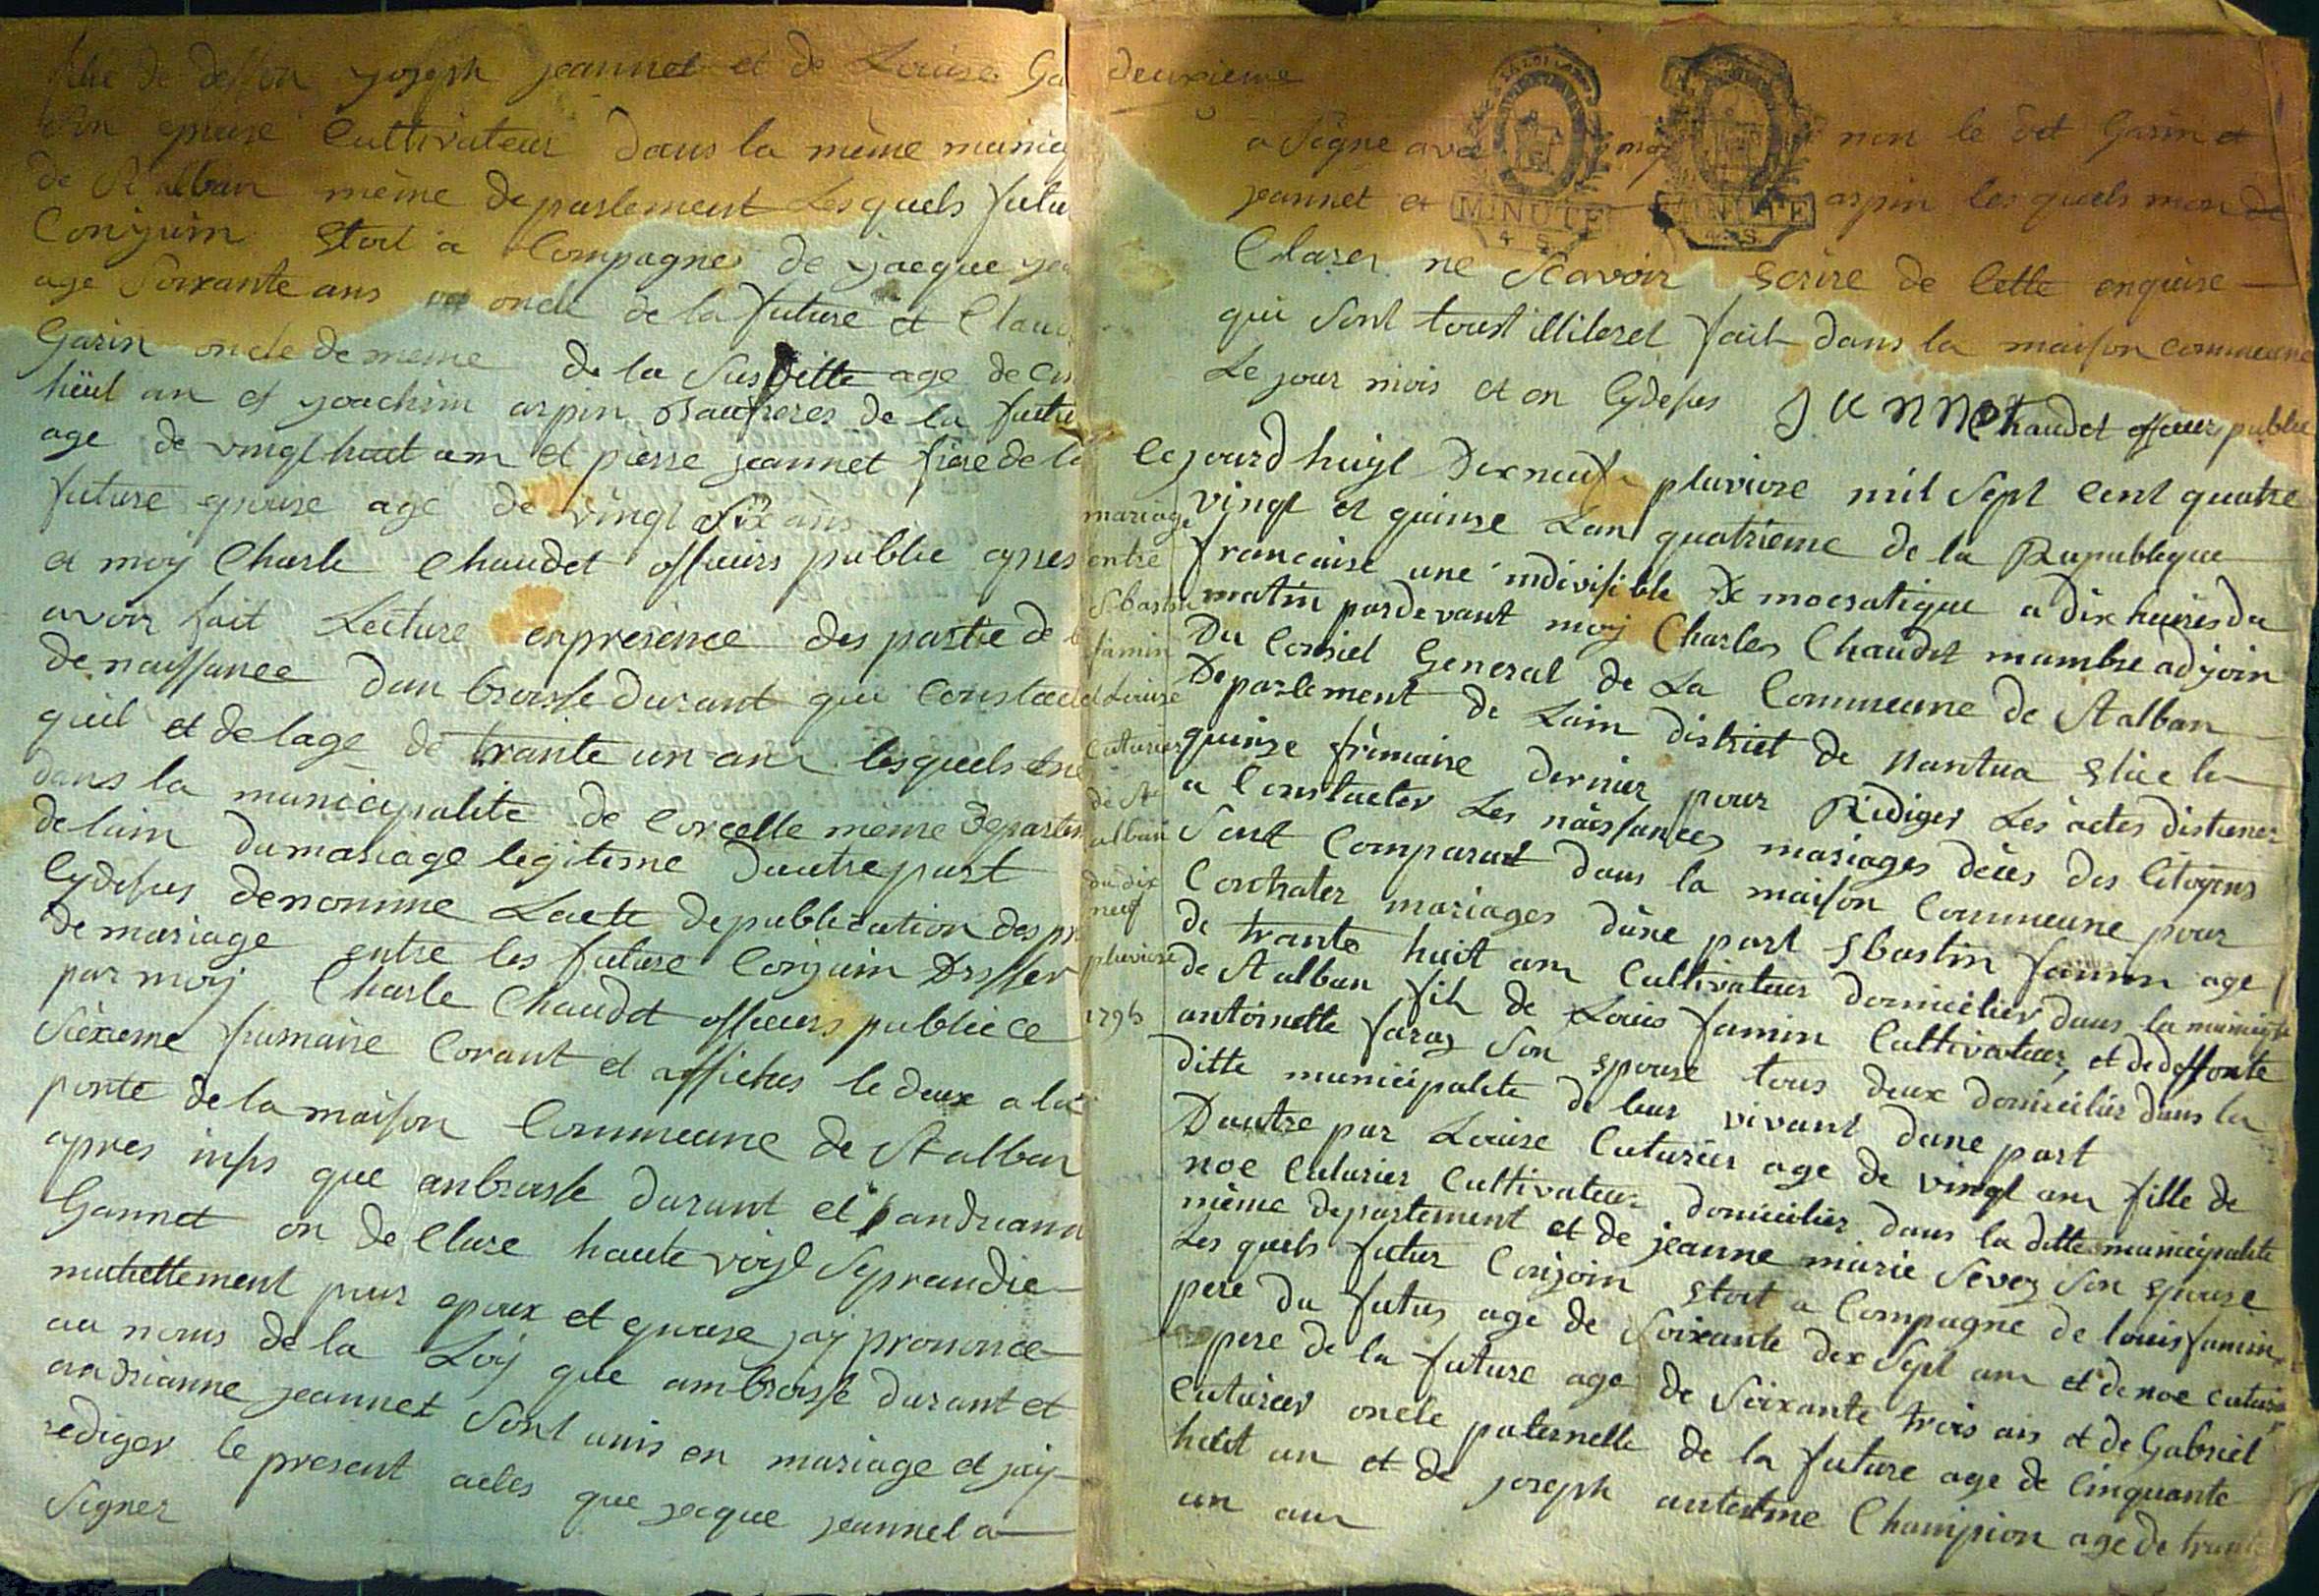 fille de deffon yoseph jeannet et de Louise Ga
Son epouse Cultivateur dans la même munici
de St alban même departement Lesquels futu
Conjuin Etoit a Compagner de yacque yea
age Soixante ans oncle de la future et Claud
Garin oncle de meme de la Susditte age de cin
huit an et yoachim arpin Beaufreres de la futu
age de vingt huit an et pierre jeannet frère de la
future epouse age de vingt Six ans
et moy Charle Chaudet officiers public apres
avoir fait Lecture en presence des partie de l
de naissance dan broisse Durant qui Constate
quil et de lage de trante un an lesquels est ne
dans la municipalite de Corcelle meme Departem
de lain du mariage legitime dautre part
Cydessus denomme Lacte de publication des pr
de mariage entre les future Conjuin Dresser
par moy Charle Chaudet officiers public ce
Sixieme frimaire Corant et affiches le deux a la
porte de la maison Commeune de St alban
apres insps que anbroisse durant et andrianne
Gannet on declare haute voye Seprandre
mutuellement pour epoux et epouse jay prononce
au noms de la Loy que ambroisse durant et
andrianne jeannet Sont unis en mariage et jay
rediger le present actes que jacque jeannet a
Signer
deuxieme
a Signe avec moy non le dit Garin et
MINUTE
4 S
MINUTE
4 S
jeannet et arpin les quels mon de
Clarer ne Scavoir Ecrire de Cette enquise
qui Sont toust illiteret fait dans la maison commeune
Le jour mois et an Cydesus J U N N E t Chaudet officiers public
mariage
entre
Sbastin
famin
et Louise
Cuturier
de St
alban
du dix
neuf
pluviose
1796
Cejourd huyt Dix neuf pluviose mil Sept Cent quatre
vingt et quinse Lan quatrieme de la Republeque
francaise une indivisible Democratique a dix heures du
matin pardevant moy Charles Chaudet mambre adjoin
Du Consiel General de La Commeune de St alban
Departement de Lain district de Nantua Elue le
quinse frimaire dernier pour Rediger Les actes distiner
a Constacter Les naissances mariages deces des Citoyens
Sont Comparut dans la maison Commeune pour
Contrater mariages dune part Sbastin famin age
de trante huit an Cultivateur domicilier dans la municip
de St alban fils de Louis famin Cultivateur et de deffonte
antoinette faraz Son epouse tous deux domicilier dans la
ditte municipalite de leur vivant dune part
Dautre par Louise Cuturier age de vingt an fille de
noe Cuturier Cultivateur domicilier dans la ditte municipalite
même departement et de jeanne marie Sevoz Son epouse
Les quels futur Conjoin Etoit a Compagne de louis famin
pere du futur age de Soixante dix Sept an et de noe cuturier
pere de la future age de Soixante trois ans et de Gabriel
Cuturier oncle paternelle de la future age de Cinquante
huit an et de joseph antelme Champion age de trante
un an